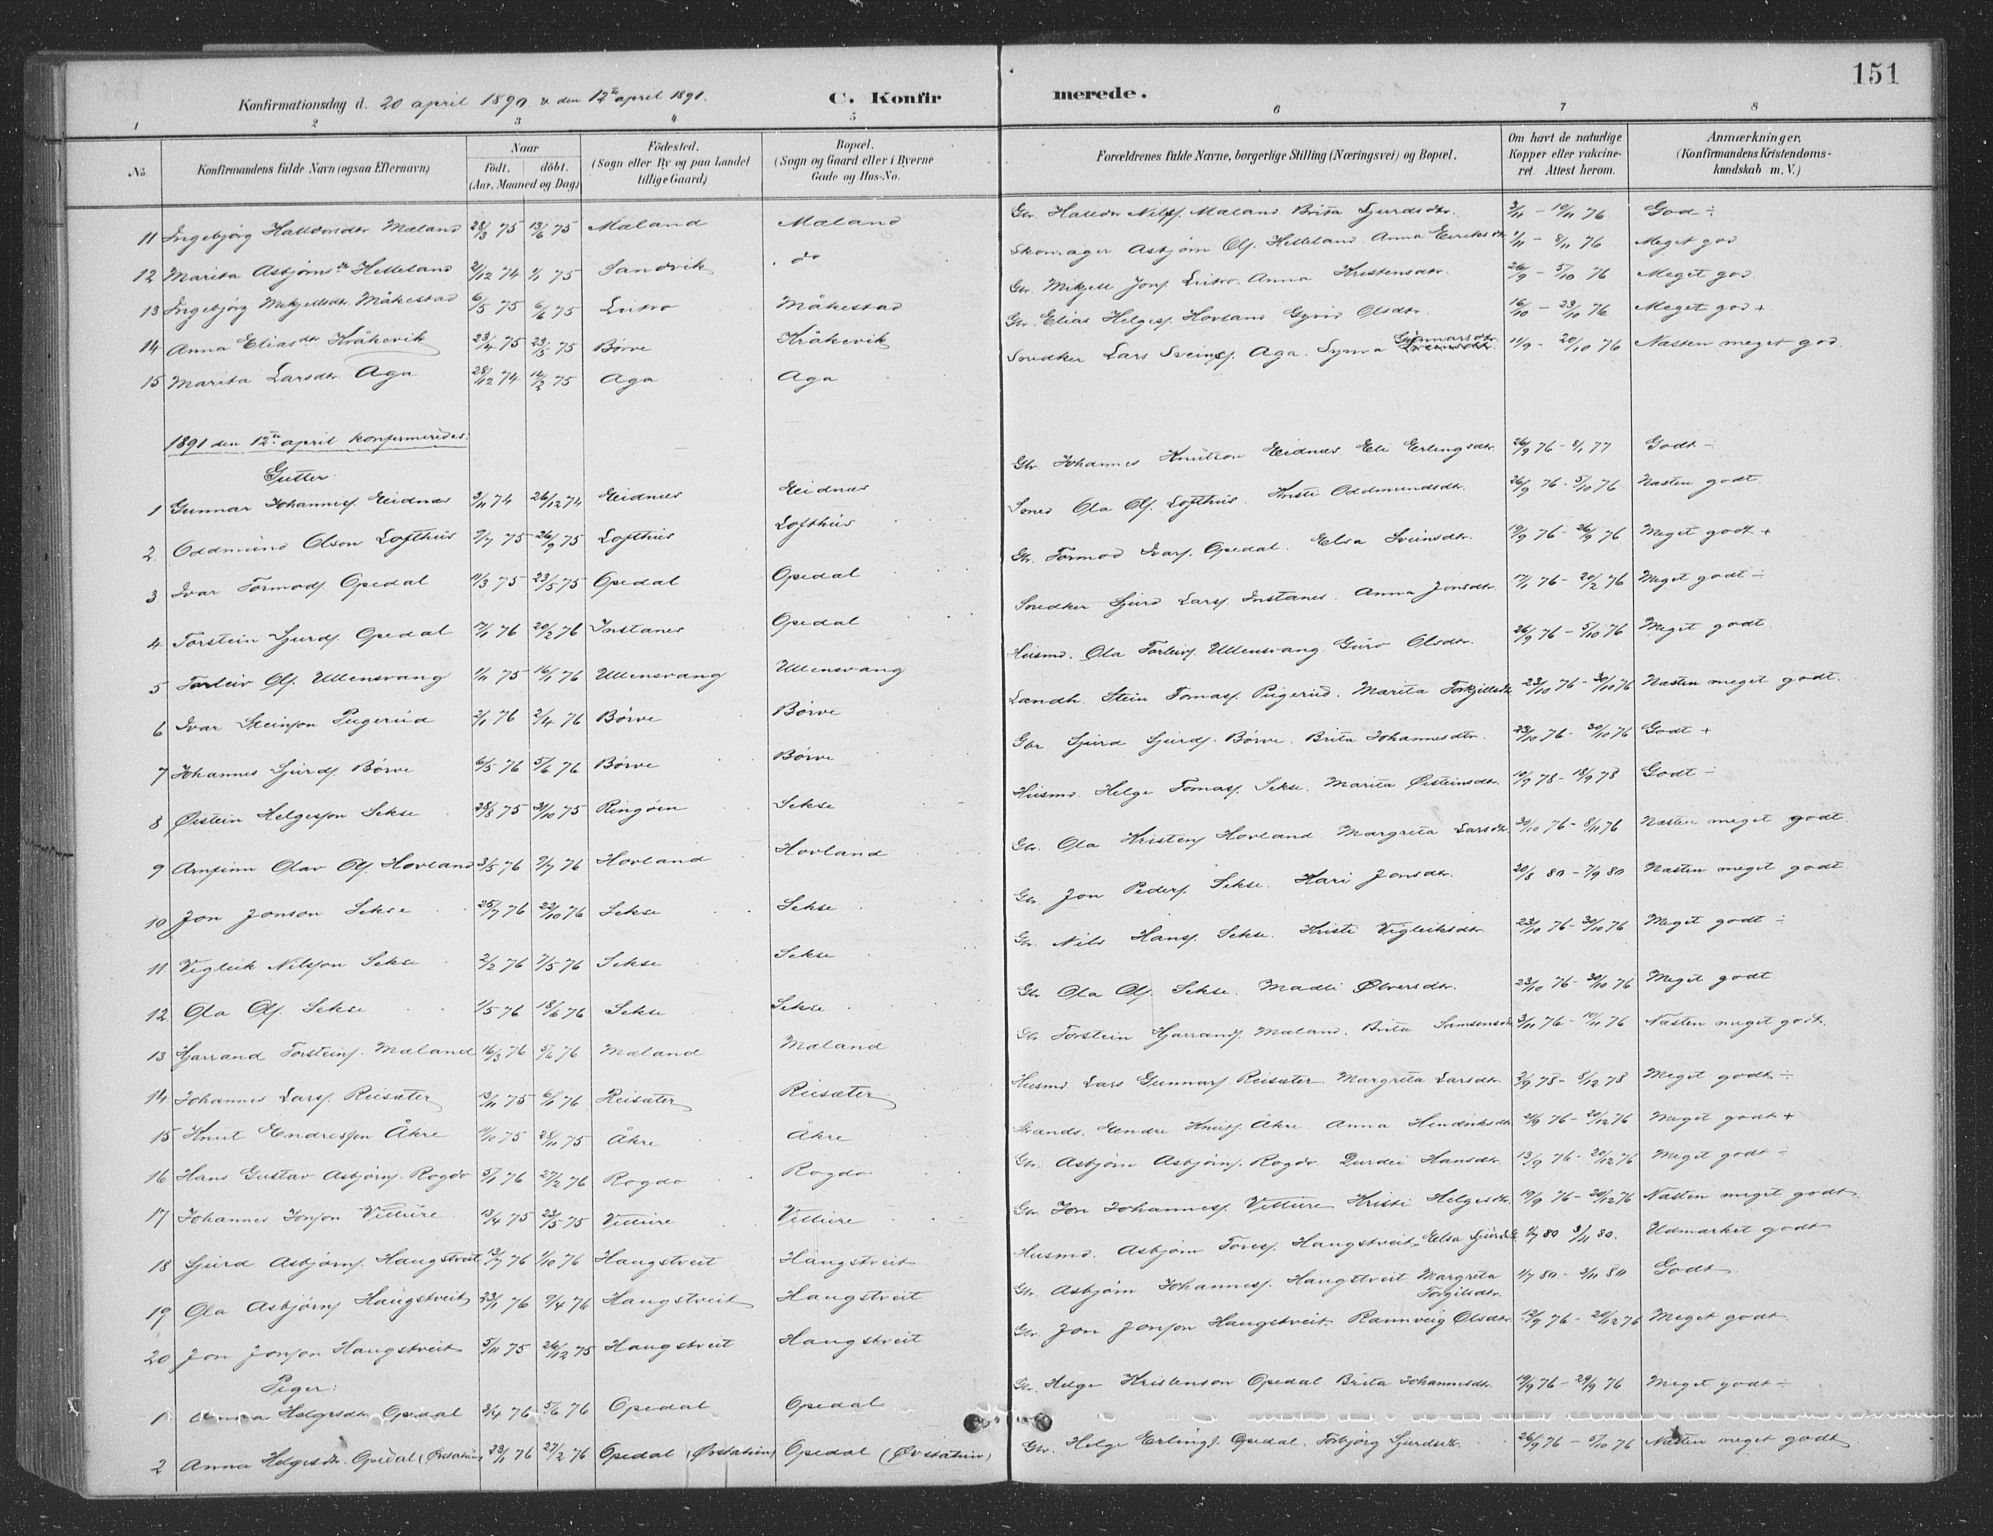 151
Konfirmationsdag d. 20 april 1890 & den 12te april 1891. C. Konfirmerede.
1 2 3 4 5 6 7 8
No. Konfirmandens fulde Navn (ogsaa Efternavn) Naar födt. döbt. (Aar, Maaned og Dag) Födested. (Sogn eller By og paa Landet tillige Gaard) Bopæl. (Sogn og Gaard eller i Byerne Gade og Hus-No. Forældrenes fulde Navne, borgerlige Stilling (Næringsvei) og Bopæl. Om havt de naturlige Kopper eller vakcineret. Attest herom. Anmærkninger, (Konfirmandens Kristendomskundskab m. V.)
11 Ingebjörg Halldorsdtr Mæland 28/3 75 13/6 75 Mæland Mæland Gbr. Halldor Nilss. Mæland Brita Sjurdsdtr. 3/11 - 10/11 76 God ÷
12 Marita Asbjørnsdtr Helleland 2/12 74 1/1 75 Sandvik do Skomager Asbjørn Ols. Helleland. Anna Eiriksdtr 1/11 - 8/11 76 Meget god
13 Ingebjörg Mikjelsdtr Måkestad 6/5 75 6/6 75 Lutro Måkestad Gbr. Mikjell Jons. Lutro. Anna Kristensdtr. 26/9 - 5/10 76 Meget god
14 Anna Eliasdtr Kråkevik 23/4 75 23/5 75 Börve Kråkevik Gbr. Elias Helges. Hovland Gyrid Olsdtr. 16/10 - 23/10 76 Meget god +
15 Marita Larsdtr. Aga 28/12 74 14/2 75 Aga Aga Snedker Lars Sveins. Aga. Synva Gunnarsdtr. 11/9 - 20/10 76 Næsten meget god.
1891 den 12te april konfirmeredes:
Gutter.
1 Gunnar Johanness. Eidnes 3/11 74 26/12 74 Eidnes Eidnes Gbr. Johannes Knutson Eidnes Eli Erlingsdtr 26/9 76 - 8/1 77 Godt ÷
2 Oddmund Olson Lofthus 9/7 75 26/9 75 Lofthus Lofthus Smed Ola Ols. Lofthus. Kristi Oddmundsdtr. 26/9 76 - 5/10 76 Næsten godt.
3 Ivar Tormods. Opedal 11/3 75 23/5 75 Opedal Opedal Gbr. Tormod Ivars. Opedal. Elsa Sveinsdtr. 19/9 76 - 26/9 76 Meget godt +
4 Torstein Sjurds. Opedal 17/1 76 20/2 76 Instanes Opedal Snedker Sjurd Lars. Instanes. Anna Jonsdtr. 17/1 76 - 20/2 76 Meget godt ÷
5 Torleiv Ols. Ullensvang 1/11 75 16/1 76 Ullensvang Ullensvang Husmd. Ola Torleivs. Ullensvang. Guro Olsdtr. 26/9 76 - 5/10 76 Meget godt.
6 Ivar Steinson Pugerud 2/1 76 2/4 76 Börve Börve Landh. Stein Tomass. Pugerud. Marita Torkjillsdtr 23/10 76 - 30/10 76 Næsten meget godt.
7 Johannes Sjurds. Börve 6/5 76 5/6 76 Börve Börve Gbr. Sjurd Sjurds. Börve. Brita Johannesdtr. 23/10 76 - 30/10 76 Godt +
8 Østein Helgeson Sekse 28/8 75 31/10 75 Ringöen Sekse Husmd. Helge Tomass. Sekse. Marita Øisteinsdtr. 10/9 78 - 18/9 78 Godt ÷
9 Arnfinn Olav Ols. Hovland 3/5 76 9/7 76 Hovland Hovland Gbr. Ola Kristens. Hovland Margreta Larsdtr 30/10 76 - 8/11 76 Næsten meget godt
10 Jon Jonson Sekse 25/7 76 22/10 76 Sekse Sekse Gbr. Jon Peders. Sekse. Kari Jonsdtr. 20/8 80 - 7/9 80 Næsten meget godt
11 Vigleik Nilsson Sekse 2/2 76 7/5 76 Sekse Sekse Gbr. Nils Hans. Sekse. Kristi Vigleiksdtr. 23/10 76 - 30/10 76 Meget godt ÷
12 Ola Ols. Sekse 1/5 76 18/6 76 Sekse Sekse Gbr Ola Ols. Sekse. Madli Ølversdtr. 23/10 76 - 30/10 76 Meget godt
13 Hjarrand Torsteins. Mæland 16/3 76 5/6 76 Mæland Mæland Gbr Torstein Hjarrands. Mæland. Brita Samsonsdtr 3/11 76 - 10/11 76 Næsten meget godt.
14 Johannes Lars. Reisæter 13/11 75 6/1 76 Reisæter Reisæter Husmd. Lars Gunnars. Reisæter Margreta Larsdtr. 2/9 78 - 8/12 78 Meget godt ÷
15 Knut Endresson Åkre 11/10 75 28/11 75 Åkre Åkre Strands. Endre Knuts. Åkre. Anna Hendriksdtr 21/9 76 - 20/12 76 Meget godt +
16 Hans Gustav Asbjørns. Rogdo 5/1 76 27/2 76 Rogdo Rogdo Gbr. Asbjørn Asbjørns. Rogdo. Durdei Hansdtr. 13/9 76 - 20/12 76 Meget godt ÷
17 Johannes Jonson Vilure 13/4 75 23/5 75 Vilure Vilure Gbr Jon Johanness. Vilure Kristi Helgesdtr. 19/9 76 - 20/12 76 Næsten meget godt.
18 Sjurd Asbjørns. Haugstveit 13/7 76 1/10 76 Haugstveit Haugstveit Husmd. Asbjørn Tores. Haugstveit Elsa Sjursdtr 1/7 80 3/11 80. Udmærket godt
19 Ola Asbjørns. Haugstveit 23/1 76 9/4 76 Haugstveit Haugstveit Gbr. Asbjørn Johanness. Haugstveit Margreta Torgilsdtr. 1/7 80 - 3/11 80 Godt
20 Jon Jonson Haugstveit 5/11 75 26/12 75 Haugstveit Haugstveit Gbr. Jon Jonson Haugstveit. Rannveig Olsdtr 12/9 76 - 20/12 76 Meget godt
Piger:
1 Anna Helgesdtr Opedal 3/4 76 5/6 76 Opedal Opedal Gbr. Helge Kristenson Opedal Brita Johannesdtr. 19/9 76 - 29/9 76 Meget godt ÷
2 Anna Helgesdtr. Opedal (Øvstatun) 23/1 76 27/2 76 Opedal (Øvstatun) Opedal (Øvstatun) Gbr. Helge Erlings. Opedal. Torbjörg Sjurdsdtr. 26/9 76 - 5/10 76 Næsten meget godt